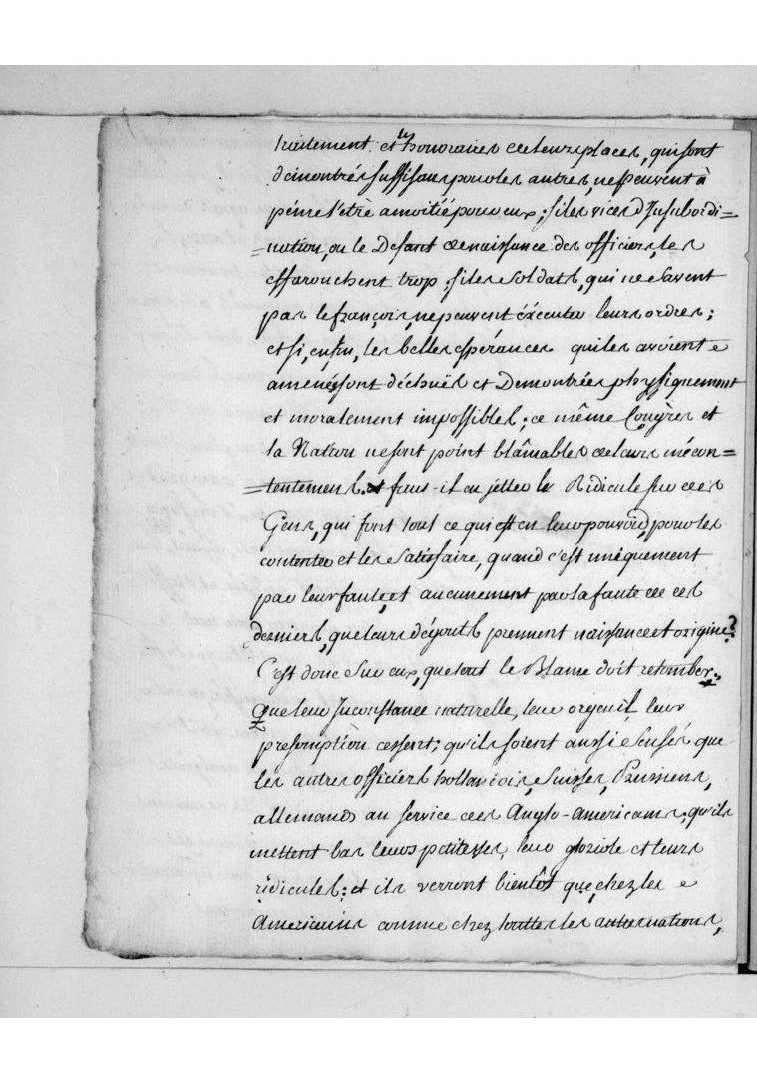 traitement et les honoraires de leurs places, qui sont
démontrés suffisans pour les autres, ne peuvent à
péine l'être a moitié pour eux; si les vices d'Insubordi=
=nation, ou le Defaut de naissance des officiers, les
effarouchent trop; si les soldats, qui ne savent
pas le françois, ne peuvent éxécuter leurs ordres;
et si, enfin, les belles espérances qui les avoient
amenés sont déchuës et Demontrées physiquement
et moralement impossibles; ce même Congrès et
la Nation ne sont point blâmables de leurs mécon=
=tentemens. et faut-il en jetter le Ridicule sur des
Gens, qui font tout ce qui est en leur pouvoir, pour les
contenter et les satisfaire, quand c'est uniquement
par leur faute, et aucunement par la faute de ces
derniers, que leurs dégouts prennent naissance et origine?
C'est donc sur eux, que tout le Blame doit retomber.
Que leur Inconstance naturelle, leur orgeuil, leur
presomption cessent; qu'ils soient aussi sensés que
les autres officiers hollandois, suisses, Prussiens,
allemands au service des Anglo-americains; qu'ils
mettent bas leurs petitesses, leur gloriole et leurs
ridicules; et ils verront bientôt que, chez les
Americains comme chez touttes les autres nations,